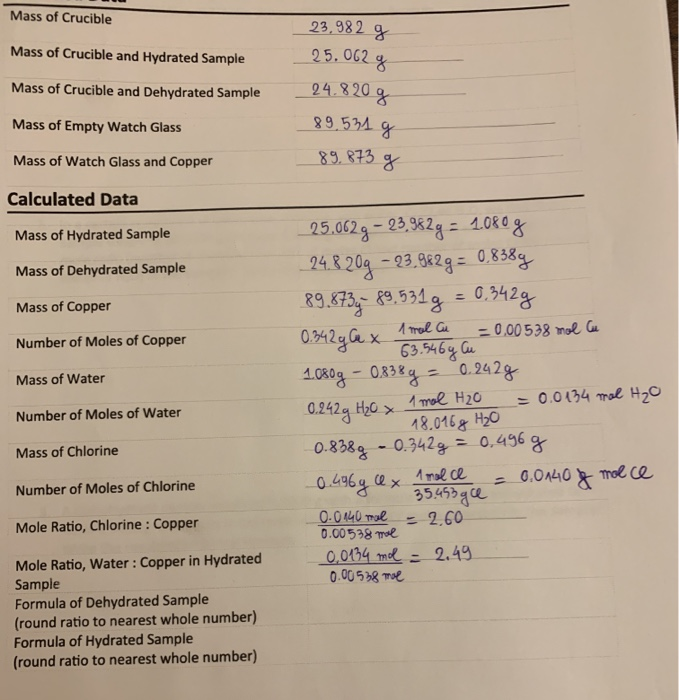 Mass of Crucible 23.982 g
Mass of Crucible and Hydrated Sample 25.062 g
Mass of Crucible and Dehydrated Sample 24.820 g
Mass of Empty Watch Glass 89.531 g
Mass of Watch Glass and Copper 89.873 g
Calculated Data
Mass of Hydrated Sample 25.062g - 23.982g = 1.080 g
Mass of Dehydrated Sample 24.820g - 23.982g = 0.838g
Mass of Copper 89.873g - 89.531g = 0.342g
Number of Moles of Copper 0.342g Cu x 1 mol Cu / 63.546g Cu = 0.00538 mol Cu
Mass of Water 1.080g - 0.838g = 0.242g
Number of Moles of Water 0.242g H2O x 1 mol H2O / 18.016g H2O = 0.0134 mol H2O
Mass of Chlorine 0.838g - 0.342g = 0.496 g
Number of Moles of Chlorine 0.496g Cl x 1 mol Cl / 35.453g Cl = 0.0140 mol Cl
Mole Ratio, Chlorine : Copper 0.0140 mol / 0.00538 mol = 2.60
Mole Ratio, Water : Copper in Hydrated 0.0134 mol / 0.00538 mol = 2.49
Sample
Formula of Dehydrated Sample
(round ratio to nearest whole number)
Formula of Hydrated Sample
(round ratio to nearest whole number)